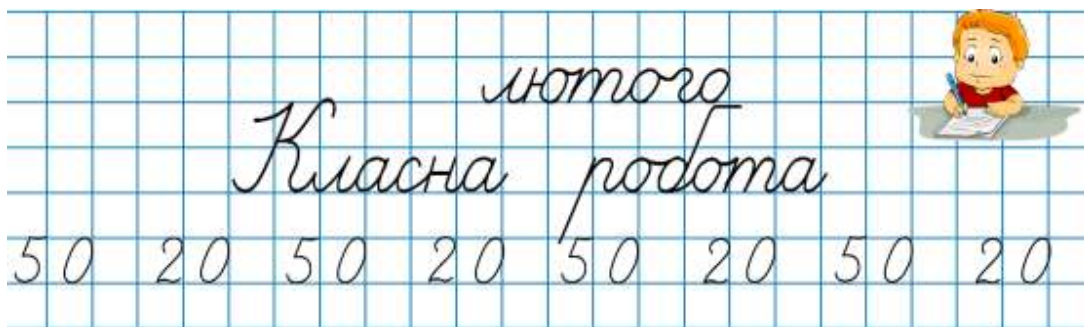 лютого
Класна робота
50 20 50 20 50 20 50 20